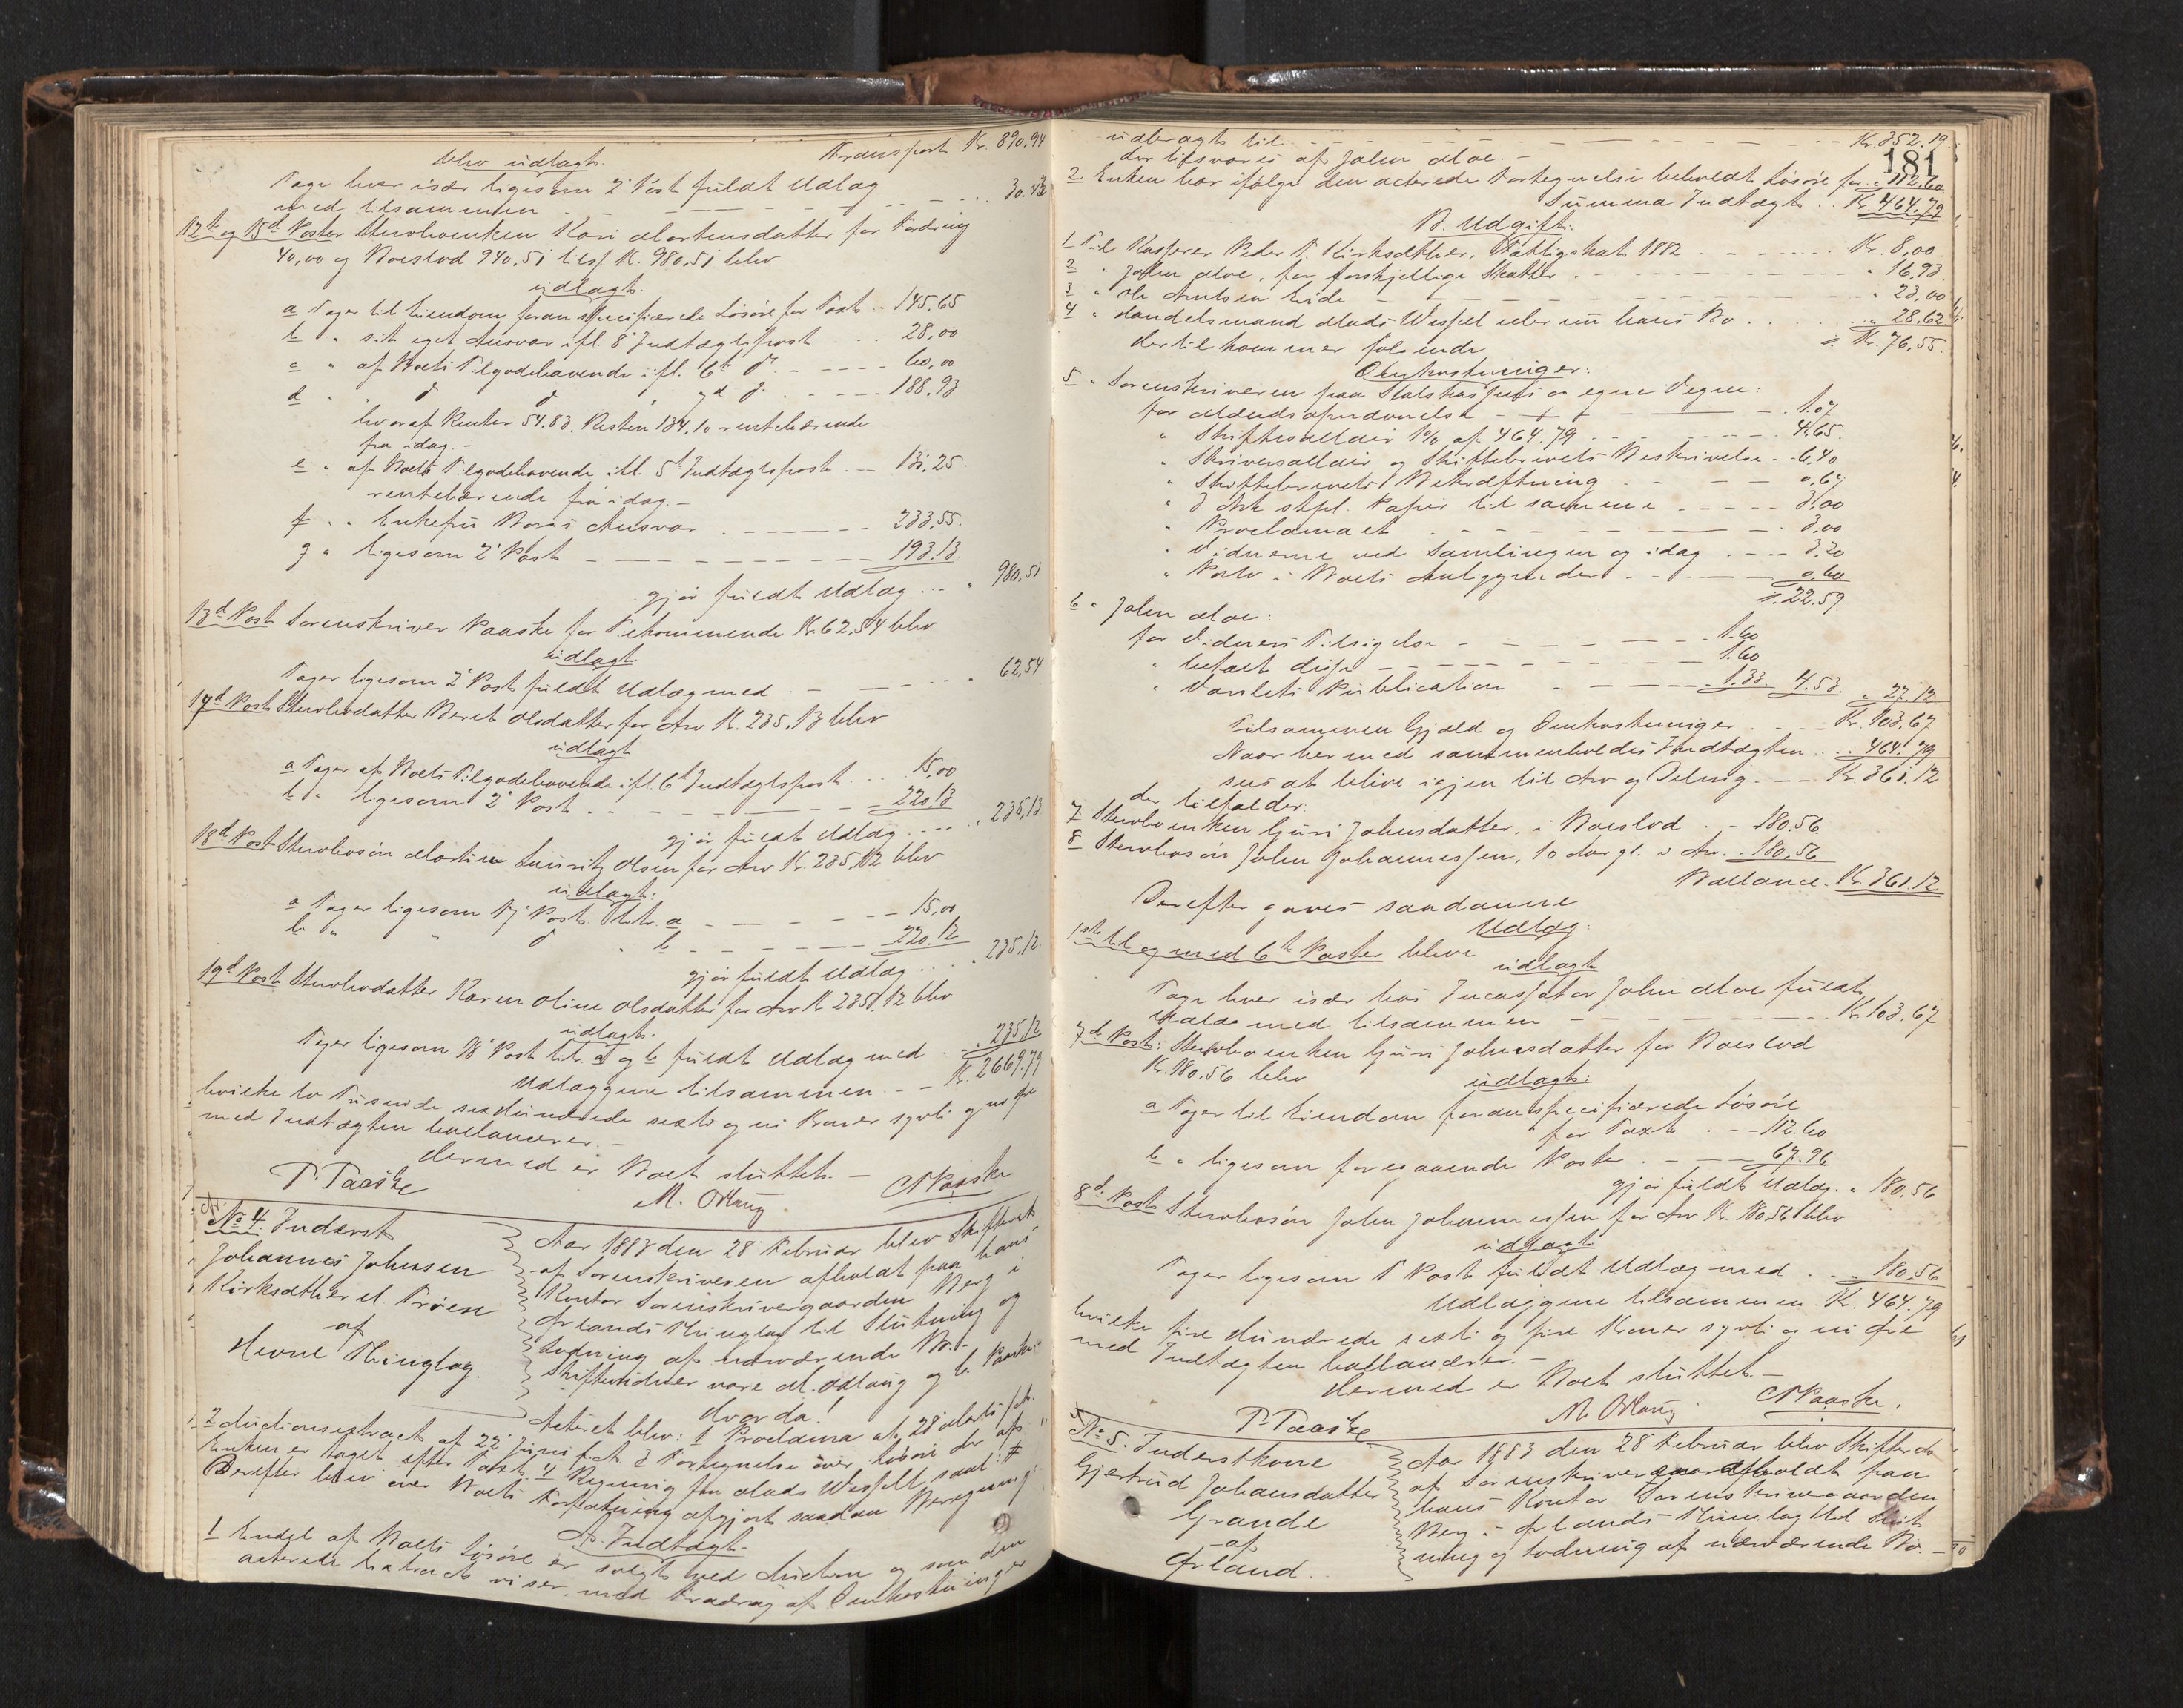 Transport Kr. 890.94
blev udlagt.
Tage hver især ligesom 2' Post fuldt Udlæg
med tilsammen - - - - - - 30.42
12te og 15d Poster Stervboenken Kari Mortensdatter for Fordring
40,00 og Boeslod 940.51 tils. Kr. 980.51 blev
udlagt.
a Tager til Eiendom foran specificerede Løsøre for Taxt - 145,65
b " sit eget Ansvar ifl. 8' Indtægtspost . . . 28,00
c " af Boets Tilgodehavende ifl. 6te do. - - - - 60,00
d " do do " do - - - - 188.93
hvoraf Renter 54.83. Resten 134.10 rentebærende
fra idag.-
e " af Boets Tilgodehavende ifl. 5t Indtægtspost. - 131.25
rentebærende fra idag.-
f " Enkefru Ansvar - - - - 233.55.
g " ligesom 2' Post - - - - - - 193.13
gjør fuldt Udlæg . . . " 980.51
13d Post Sorenskriver Paaske for Tilkommende Kr. 62,54 blev
udlagt.
Tager ligesom 2' Post fuldt Udlæg med - - - - " 62,54
17d Post Stervbodatter Beret Olsdatter for Arv Kr. 235.13 blev
udlagt
a Tager af Boets Tilgodehavende ifl. 6t Indtægtspost . . . 15,00
b " ligesom 2' Post . . - - - - - 220.13
gjør fuldt Udlæg . . . . " 235,13
18d Post Stervbosøn Martin Lauritz Olsen for Arv Kr. 235,12 blev
udlagt.
a Tager ligesom 17' Post Litr. a - - - - - 15,00
b " " do " b - - - - - 220.12
gjør fuldt Udlæg . . . " 235,12
19d Post Stervbodatter Karen Oline Olsdatter for Arv Kr 235.12 blev
udlagt.
Tager ligesom 18' Post litr. a og b fuldt Udlæg med . . 235,12
Udlæggene tilsammen . - Kr. 2669.79
hvilke to Tusinde sexhundrede sexti og ni Kroner sytti og ni Øre
med Indtægten ballancerer.-
Hermed er Boet sluttet.-
P. Paaske M. Odlaug. Paaske
No 4. Inderst
Johannes Johnsen
Kirksæther el. Trøen
af
Hevne Thinglag.
Aar 1883 den 28 Februar blev Skifteret
af Sorenskriveren afholdt paa hans
Kontor Sorenskrivergaarden Berg i
Ørlands Thinglag til Slutning og
Lodning af nærværende Bo.-
Skiftevidner vare M. Odlaug og P. Paaske.
Hvorda!
Acteret blev: 1 Proclama af 28 Marts f.A.
2 Auctionsextract af 22' Juni f.A. 3 Fortegnelse over Løsøre der af
Enken er taget efter Taxt. 4 Regning fra Mads Wessel, samt:
Derefter blev over Boets Forfatning afgjort saadan Beregning:
A. Indtægt.
1 Endel af Boets Løsøre er solgt ved Auction og som den
acterede Extract viser med Fradrag af Omkostninger
udbragt til - - - - - - Kr. 352.19
181
der tilsvares af John Moe.-
2. Enken har ifølge den acterede Fortegnelse beholdt Løsøre for " 112.60
Summa Indtægt . . Kr. 464.79
B. Udgift.
1 Til Kasserer Peder T. Kirksæther, Fattigskat 1882 . - - - - Kr. 8,00
2 " John Moe, for forskjellige Skatter - - - - " 16.93
3 " Ole Arntsen Eide - - - - - - " 23,00
4 " Handelsmand Mads Wessel eller nu hans Bo . . . . " 28.62
Kr. 76,55.
dertil kommer følgende
Omkostninger:
5 " Sorenskriveren paa Statskassens og egne Vegne:
for - - - 1.07
" Skiftesallair 1% af 464.79 . - - - - 4.65.
" Skriversallair og Skiftebrevets Beskrivelse - 6.40
" Skiftebrevets Bekræftning - - - 0.67
" 3 Ark stpl. Papir til samme - - - - - 3.00
" Proclamaet - - - - - 3.00
" Vidnerne ved Samlingen og idag . - - - 3.20
" Porto i Boets Anliggender - - - - 0.60
22.59.
6 " John Moe:
for Vidners Tilsigelse - - - - - 1.60
" befaret disse - - - - - 1.60
" Varslets Publication - - - - 1.33 4.53. " 27.12
Tilsammen Gjæld og Omkostninger . - - Kr. 103.67
Naar hermed sammenholdes Indtægten . . . 464.79
sees at blive igjen til Arv og Deling. - - Kr. 361.12
der tilfalder:
7 Stervboenken Guri Johnsdatter, i Boeslod . - - 180.56
8 Stervbosøn John Johannessen, 10 Aar gl. i Arv. - 180,56
Ballance. Kr. 361.12
Derefter gaves saadanne
Udlæg.
1ste til og med 6te Poster bleve
udlagt
Tage hver især hos Incassator John Moe fuldt
Udlæg med tilsammen - - - - - Kr. 103.67
7d Post: Stervboenken Guri Johnsdatter for Boeslod
Kr. 180.56 blev
udlagt:
a Tager til Eiendom foran specificerede Løsøre
for Taxt . - - 112.60
b " ligesom foregaaende Poster . - - - 67.96
gjør fuldt Udlæg. " 180.56
8d Post Stervbosøn John Johannessen for Arv Kr. 180.56 blev
udlagt
Tager ligesom 1 Post fuldt Udlæg med . . . 180.56
Udlæggene tilsammen. Kr. 464.79
hvilke fire Hundrede sexti og fire Kroner sytti og ni Øre
med Indtægten ballancerer.-
Hermed er Boet sluttet.-
P. Paaske M. Odlaug Paaske.
No 5. Inderstkone
Gjertrud Johansdatter
Grande
af
Ørland.
Aar 1883 den 28 Februar blev Skifteret
af Sorenskriveren afholdt paa
hans Kontor Sorenskrivergaarden
Berg i Ørlands Thinglag til Slut-
ning og Lodning af nærværende Bo.-